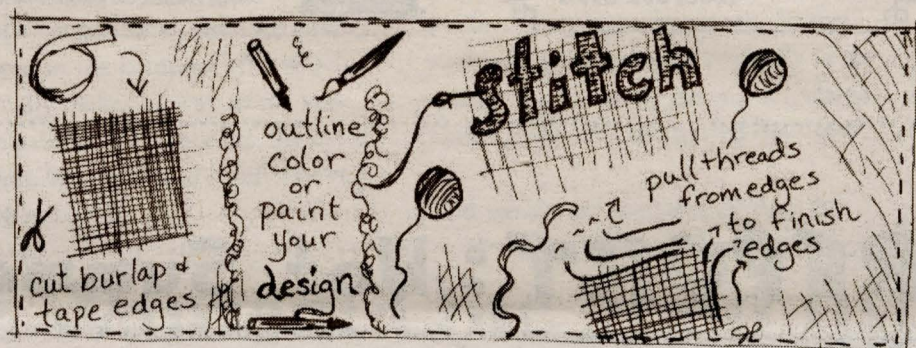 cut burlap &
tape edges
outline
color
or
paint
your
design
Stitch
pull threads
from edges
to finish
edges